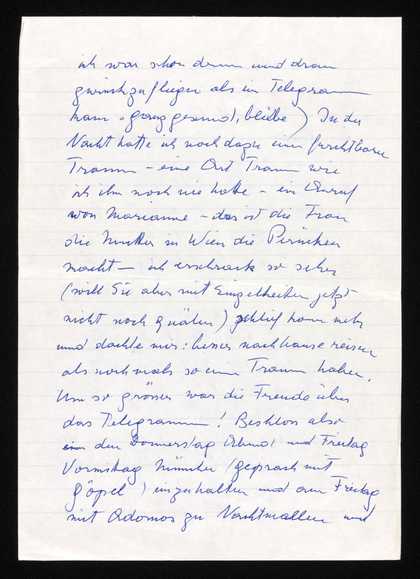 ich war schon drum und dran
zurückzufliegen als ein Telegramm
kam "ganz gesund, bleibe") In der
Nacht hatte ich noch dazu einen furchtbaren
Traum – eine Art Traum wie
ich ihn noch nie hatte – ein Anruf
von Marianne – das ist die Frau
die Mutter in Wien die Perücken
macht – ich erschrack so sehr
(will Sie aber mit Einzelheiten jetzt
nicht noch quälen) schlief kaum mehr
und dachte mir: besser nachhause reisen
als nochmals so einen Traum haben.
Um so grösser war die Freude über
das Telegramm! Beschloss also
den Donnerstag Abend und Freitag
Vormittag München (gespräch mit
Göpel) einzuhalten und am Freitag
mit Adornos zu Nachtmallen und